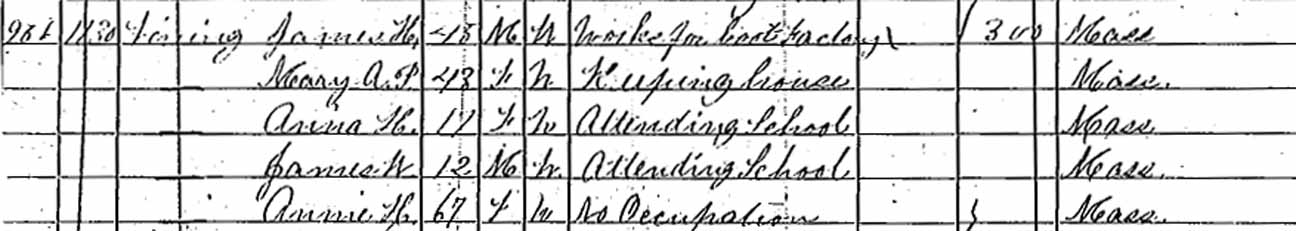 1130 James H. 45 M W Works in boot Factory 300 Mass
Mary A. P. 43 F W Keeping house Mass.
Anna H. 17 F W Attending School Mass.
James W 12 M W Attending School Mass.
Annie H. 67 F W No Occupation Mass.